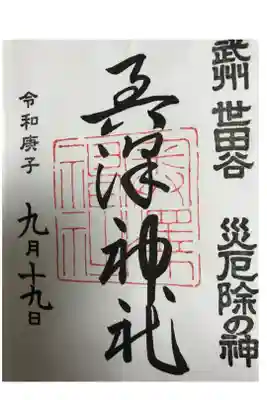 武州 世田谷 災厄除の神
奥澤神社
令和庚子 九月十九日